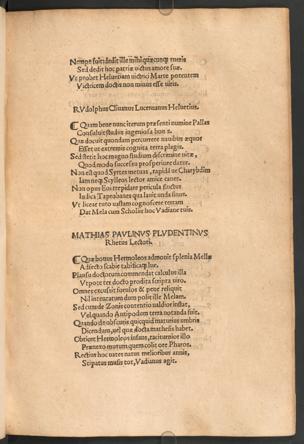 dedit ille mihi quæcunq; meis
Sed dedit hoc patriæ victus amore suæ.
Vt probet Heluetiam victrici Marte potentem
Victricem doctis non minus esse viris.
Rudolphus Cliuanus Lucernanus Heluetius.
Quam bene nunc iterum præsenti numine Pallas
Consuluit studiis ingeniosa
Quæ docuit quondam percurrere nauibus æquor
Esset ut extremis cognita terra plagis.
Sed stetit hoc magno studium discrimine
Quod modo successu prosperiore datur.
Non est quod Syrteis metuas, rapidá ue Charybdim
Iam neq; Scylleos lector amice canes.
Non opus Eois trepidare pericula fluctus
Indica Taprobanes qua lauit unda sinum.
Vt liceat tuto uastam cognoscere terram
Dat Mela cum Scholiis hoc Vadiane tuis.
MATHIAS PAVLINVS PLVDENTINVS
Rhetus Lectori.
Quæ bonus Hermoleos admouit splenia Melæ
Affecto scabie
Plausu doctorum commendat calculus illa
Vtpote tec docto prodita scripta uiro.
Omneis excussit forulos & pene reliquit
Nil intentatum dum polit ille Melam.
Sed cum de Zonis contentio
Vel quando Antipodum terra notanda fuit.
Quando de obscuris quicquid maturius umbris
Dicendum, uel quæ docta mathesis habet.
Obticet Hermoleos infans, taciturnior illo
mutum quem colit ore Pharos.
Rectius hoc uates natus melioribus annis,
Stipatus musis tot, Vadianus agit.